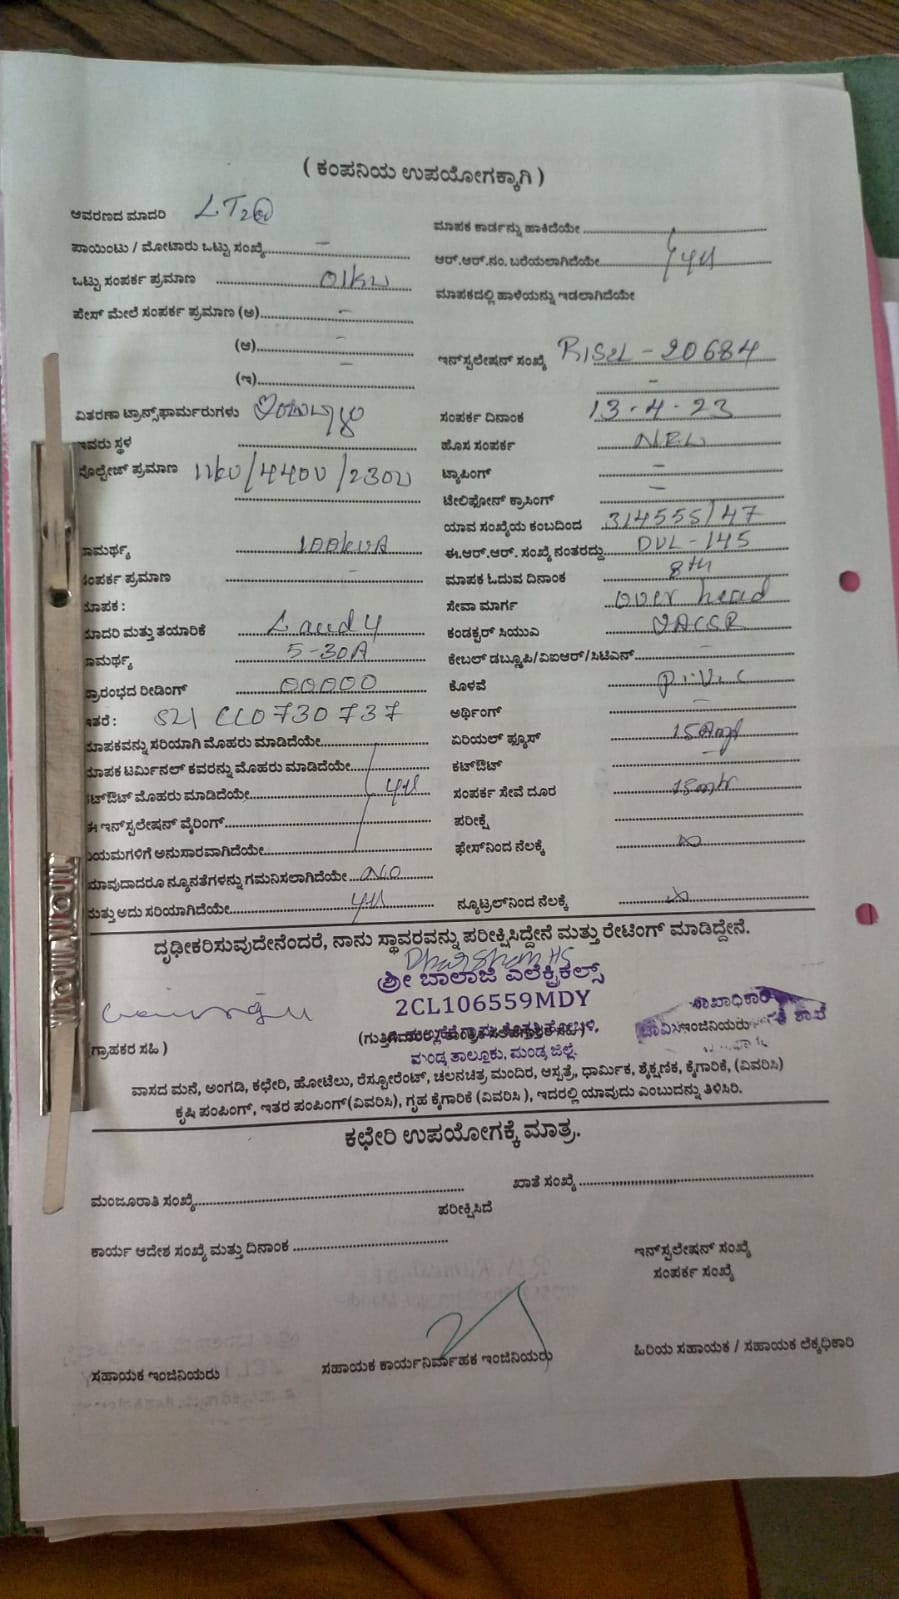 ( ಕಂಪನಿಯ ಉಪಯೋಗಕ್ಕಾಗಿ )
ಆವರಣದ ಮಾದರಿ LT2
ಪಾಯಿಂಟು / ಮೋಟಾರು ಒಟ್ಟು ಸಂಖ್ಯೆ –
ಒಟ್ಟು ಸಂಪರ್ಕ ಪ್ರಮಾಣ 01kw
ಪೇಸ್ ಮೇಲೆ ಸಂಪರ್ಕ ಪ್ರಮಾಣ (ಅ) –
(ಆ) –
(ಇ) –
ವಿತರಣಾ ಟ್ರಾನ್ಸ್‌ಫಾರ್ಮರುಗಳು
ಇವರು ಸ್ಥಳ
ವೊಲ್ಟೇಜ್ ಪ್ರಮಾಣ 11kv/440v/230v
ಸಾಮರ್ಥ್ಯ 100kVA
ಸಂಪರ್ಕ ಪ್ರಮಾಣ –
ಮಾಪಕ :
ಮಾದರಿ ಮತ್ತು ತಯಾರಿಕೆ
ಸಾಮರ್ಥ್ಯ 5-30A
ಪ್ರಾರಂಭದ ರೀಡಿಂಗ್ 00000
ಇತರೆ : 730737
ಮಾಪಕವನ್ನು ಸರಿಯಾಗಿ ಮೊಹರು ಮಾಡಿದೆಯೇ
ಮಾಪಕ ಟರ್ಮಿನಲ್ ಕವರನ್ನು ಮೊಹರು ಮಾಡಿದೆಯೇ
ಕಟ್‌ಔಟ್ ಮೊಹರು ಮಾಡಿದೆಯೇ yes
ಈ ಇನ್‌ಸ್ಟಲೇಷನ್ ವೈರಿಂಗ್
ನಿಯಮಗಳಿಗೆ ಅನುಸಾರವಾಗಿದೆಯೇ
ಯಾವುದಾದರೂ ನ್ಯೂನತೆಗಳನ್ನು ಗಮನಿಸಲಾಗಿದೆಯೇ No
ಮತ್ತು ಅದು ಸರಿಯಾಗಿದೆಯೇ yes
ಮಾಪಕ ಕಾರ್ಡನ್ನು ಹಾಕಿದೆಯೇ
ಆರ್.ಆರ್.ನಂ. ಬರೆಯಲಾಗಿದೆಯೇ yes
ಮಾಪಕದಲ್ಲಿ ಹಾಳೆಯನ್ನು ಇಡಲಾಗಿದೆಯೇ
ಇನ್‌ಸ್ಟಲೇಷನ್ ಸಂಖ್ಯೆ 20684
–
ಸಂಪರ್ಕ ದಿನಾಂಕ 13-4-23
ಹೊಸ ಸಂಪರ್ಕ NEW
ಟ್ಯಾಪಿಂಗ್ –
ಟೇಲಿಫೋನ್ ಕ್ರಾಸಿಂಗ್ –
ಯಾವ ಸಂಖ್ಯೆಯ ಕಂಬದಿಂದ 314555/47
ಈ.ಆರ್.ಆರ್. ಸಂಖ್ಯೆ ನಂತರದ್ದು DVL-145
ಮಾಪಕ ಓದುವ ದಿನಾಂಕ 8th
ಸೇವಾ ಮಾರ್ಗ over head
ಕಂಡಕ್ಟರ್ ಸಿಯುಎ
ಕೇಬಲ್ ಡಬ್ಲ್ಯೂಪಿ/ವಿಐಆರ್/ಸಿಟಿಎನ್ –
ಕೊಳವೆ P.V.C
ಅರ್ಥಿಂಗ್ –
ಏರಿಯಲ್ ಫ್ಯೂಸ್ 15Amp
ಕಟ್‌ಔಟ್ –
ಸಂಪರ್ಕ ಸೇವೆ ದೂರ 15mtr
ಪರೀಕ್ಷೆ
ಫೇಸ್‌ನಿಂದ ನೆಲಕ್ಕೆ ∞
ನ್ಯೂಟ್ರಲ್‌ನಿಂದ ನೆಲಕ್ಕೆ ∞
ದೃಢೀಕರಿಸುವುದೇನೆಂದರೆ, ನಾನು ಸ್ಥಾವರವನ್ನು ಪರೀಕ್ಷಿಸಿದ್ದೇನೆ ಮತ್ತು ರೇಟಿಂಗ್ ಮಾಡಿದ್ದೇನೆ.
ಶ್ರೀ ಬಾಲಾಜಿ ಎಲೆಕ್ಟ್ರಿಕಲ್ಸ್
2CL106559MDY
ಮಂಡ್ಯ ತಾಲ್ಲೂಕು, ಮಂಡ್ಯ ಜಿಲ್ಲೆ.
(ಗ್ರಾಹಕರ ಸಹಿ )
ಶಾಖಾಧಿಕಾರಿ
ಇಂಜಿನಿಯರು
ವಾಸದ ಮನೆ, ಅಂಗಡಿ, ಕಛೇರಿ, ಹೋಟೆಲು, ರೆಸ್ಟೋರೆಂಟ್, ಚಲನಚಿತ್ರ ಮಂದಿರ, ಆಸ್ಪತ್ರೆ, ಧಾರ್ಮಿಕ, ಶೈಕ್ಷಣಿಕ, ಕೈಗಾರಿಕೆ, (ವಿವರಿಸಿ)
ಕೃಷಿ ಪಂಪಿಂಗ್, ಇತರ ಪಂಪಿಂಗ್(ವಿವರಿಸಿ), ಗೃಹ ಕೈಗಾರಿಕೆ (ವಿವರಿಸಿ ), ಇದರಲ್ಲಿ ಯಾವುದು ಎಂಬುದನ್ನು ತಿಳಿಸಿರಿ.
ಕಛೇರಿ ಉಪಯೋಗಕ್ಕೆ ಮಾತ್ರ.
ಮಂಜೂರಾತಿ ಸಂಖ್ಯೆ ಖಾತೆ ಸಂಖ್ಯೆ
ಪರೀಕ್ಷಿಸಿದೆ
ಕಾರ್ಯ ಆದೇಶ ಸಂಖ್ಯೆ ಮತ್ತು ದಿನಾಂಕ
ಇನ್‌ಸ್ಟಲೇಷನ್ ಸಂಖ್ಯೆ
ಸಂಪರ್ಕ ಸಂಖ್ಯೆ
ಸಹಾಯಕ ಇಂಜಿನಿಯರು ಸಹಾಯಕ ಕಾರ್ಯನಿರ್ವಾಹಕ ಇಂಜಿನಿಯರು ಹಿರಿಯ ಸಹಾಯಕ / ಸಹಾಯಕ ಲೆಕ್ಕಧಿಕಾರಿ